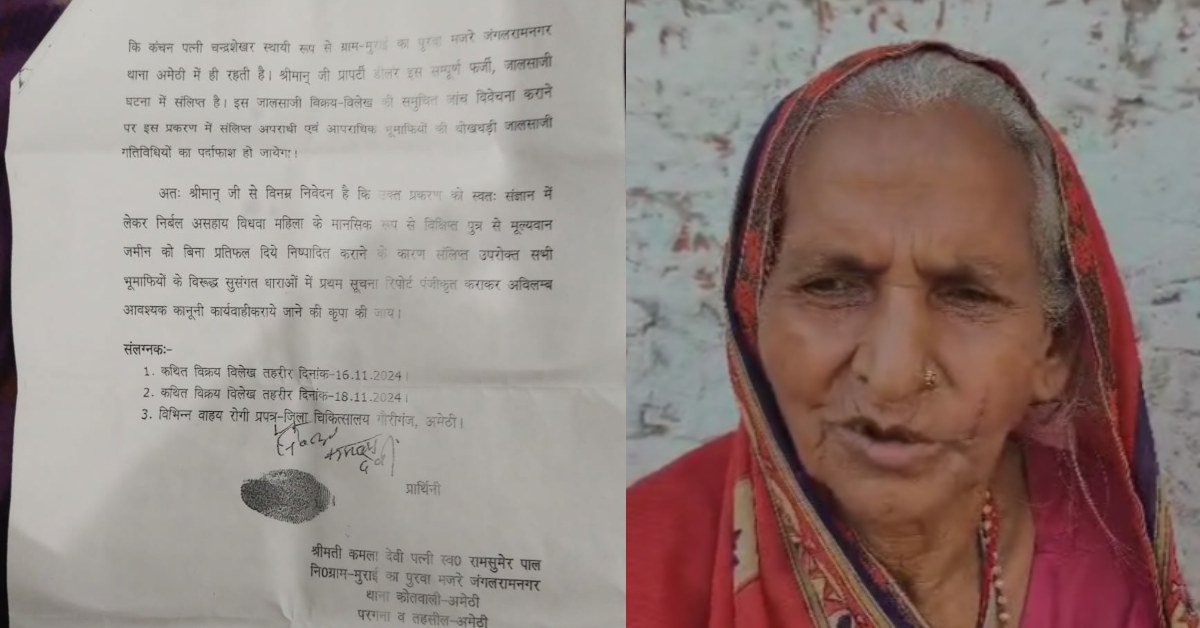 कि कंचन पत्नी चन्द्रशेखर स्थायी रूप से ग्राम-मुराई का पुरवा मजरे जंगलरामनगर
थाना अमेठी में ही रहती है। श्रीमान् जी प्रापर्टी डीलर इस सम्पूर्ण फर्जी, जालसाजी
घटना में संलिप्त है। इस जालसाजी विक्रय-विलेख की समुचित जांच विवेचना कराने
पर इस प्रकरण में संलिप्त अपराधी एवं आपराधिक भूमाफियों की धोखधड़ी जालसाजी
गतिविधियों का पर्दाफाश हो जायेगा।
अतः श्रीमान् जी से विनम्र निवेदन है कि उक्त प्रकरण को स्वतः संज्ञान में
लेकर निर्बल असहाय विधवा महिला के मानसिक रूप से विक्षिप्त पुत्र से मूल्यवान
जमीन को बिना प्रतिफल दिये निष्पादित कराने के कारण संलिप्त उपरोक्त सभी
भूमाफियों के विरूद्ध सुसंगत धाराओं में प्रथम सूचना रिपोर्ट पंजीकृत कराकर अविलम्ब
आवश्यक कानूनी कार्यवाहीकराये जाने की कृपा की जाय।
संलग्नकः-
1. कथित विक्रय विलेख तहरीर दिनांक-16.11.2024।
2. कथित विक्रय विलेख तहरीर दिनांक-18.11.2024।
3. विभिन्न वाहय रोगी प्रपत्र-जिला चिकित्सालय गौरीगंज, अमेठी।
प्रार्थिनी
श्रीमती कमला देवी पत्नी स्व0 रामसुमेर पाल
नि0ग्राम-मुराई का पुरवा मजरे जंगलरामनगर
थाना कोतवाली-अमेठी
परगना व तहसील-अमेठी